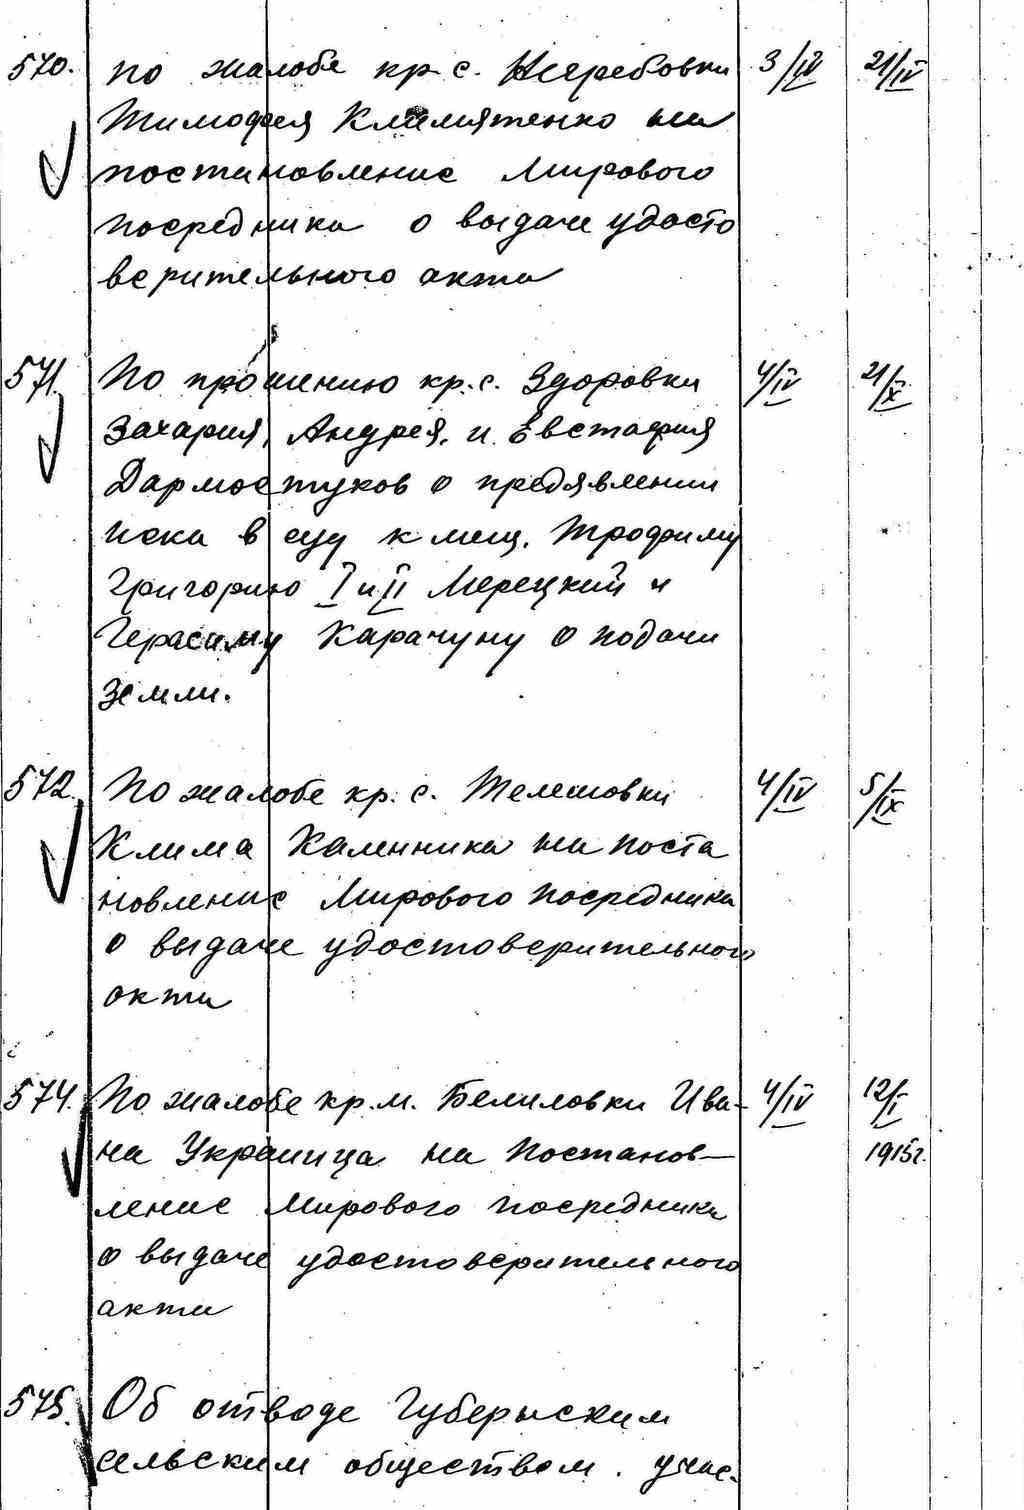 570. по жалобе кр. с. Жеребовки 3/IV 21/IV
Тимофея Климятенко на
постановление Мирового
посредника о выдаче удосто
верительного акта
571. По прошению кр. с. Здоровки 4/IV 21/X
Захария, Андрея, и Евстафия
Дармостуков о предявлении
иска в суд к мещ. Трофиму
Григорию I и II Мерецкий и
Герасиму Карачуну о подачи
земли.
572. По жалобе кр. с. Телешовки 4/IV 5/IX
Клима Калинника на поста
новление Мирового посредника
о выдаче удостоверительного
акта
574. По жалобе кр. м. Белиловки Ива- 4/IV 12/I
на Украинца на Постанов- 1915г.
ление Мирового посредника
о выдаче удостоверительного
акта
575. Об отводе Губерыским
сельским обществом. учас-